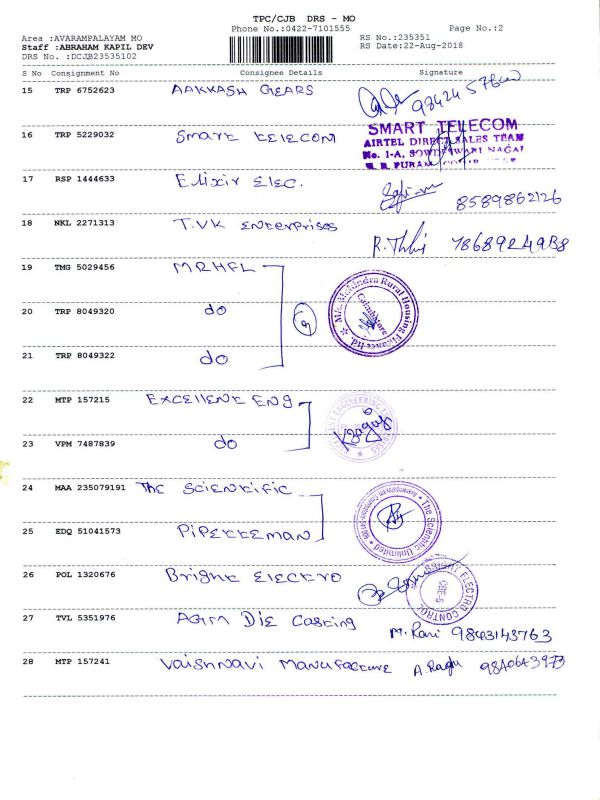 TPC/CJB DRS - MO
Phone No.:0422-7101555 Page No.:2
Area :AVARAMPALAYAM MO RS No.:235351
Staff :ABRAHAM KAPIL DEV RS Date:22-Aug-2018
DRS No. :DCJB23535102
S No Consignment No Consignee Details Signature
15 TRP 6752623 AAKKASH GEARS
16 TRP 5229032 Smart telecom
SMART TELECOM
AIRTEL DIRECT SALES TEAM
No. 1-A, SOWDESWARI NAGAR
17 RSP 1444633 Elixir Elec. 8589862126
18 NKL 2271313 T.VK Enterprises
19 TMG 5029456 MRHFL
20 TRP 8049320 do 3
M/s. Mahindra Rural Housing Finance Ltd
Coimbatore
21 TRP 8049322 do
22 MTP 157215 Excellent Eng
23 VPM 7487839 do
24 MAA 235079191 The Scientific
The Scientific Unlimited
25 EDQ 51041573 Pipetteman
26 POL 1320676 Bright Electro
BRIGHT ELECTRO CONTROL
CBE-6
27 TVL 5351976 Agim Die Casting M. Rani 9843143763
28 MTP 157241 Vaishnavi Manufacture A. Raghu 9840643973